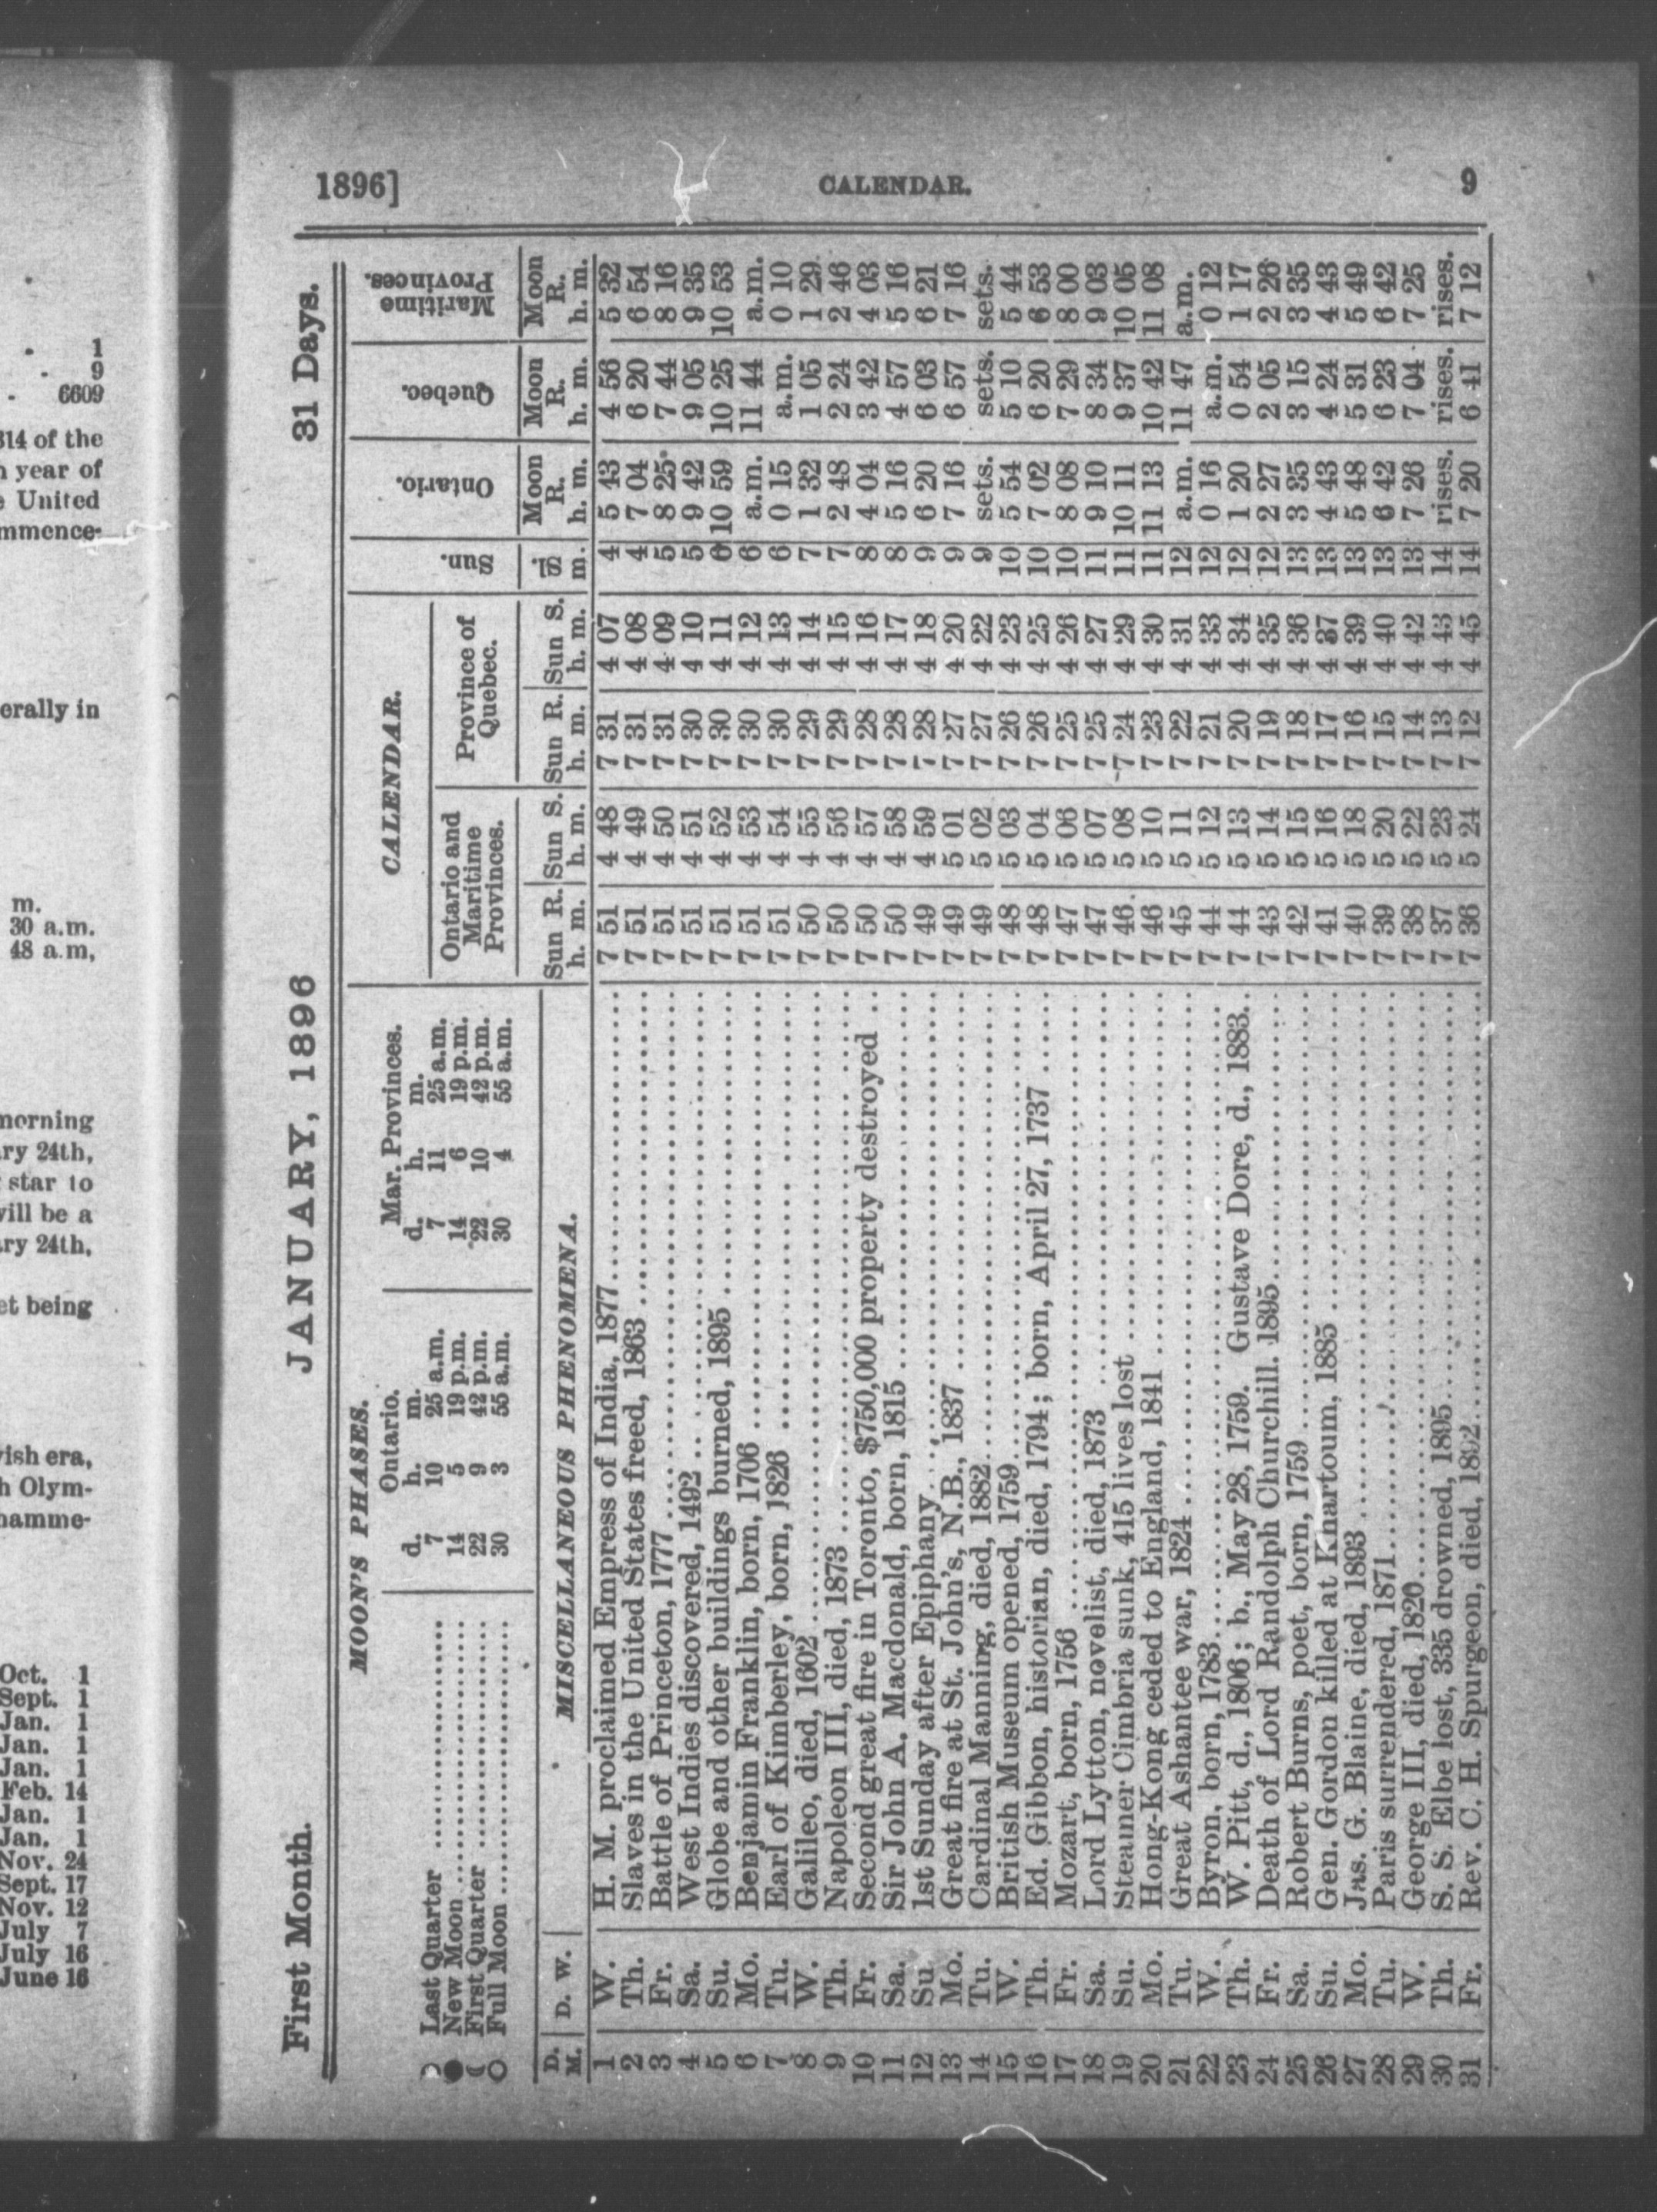 1
9
6609
314 of the
year of
United
mmence-
erally in
m.
30 a.m.
48 a.m,
morning
ry 24th,
star to
will be a
ry 24th,
et being
ish era,
h Olym-
hamme-
Oct. 1
Sept. 1
Jan. 1
Jan. 1
Jan. 1
Feb. 14
Jan. 1
Jan. 1
Nov. 24
Sept. 17
Nov. 12
July 7
July 16
June 16
1896] CALENDAR. 9
First Month. JANUARY, 1896 31 Days.
MOON'S PHASES. CALENDAR. Sun. Ontario. Quebec. Maritime Provinces.
Ontario. Mar. Provinces. Ontario and Maritime Provinces. Province of Quebec.
d. h. m. d. h. m.
Last Quarter 7 10 25 a.m. 7 11 25 a.m.
New Moon 14 5 19 p.m. 14 6 19 p.m.
First Quarter 22 9 42 p.m. 22 10 42 p.m.
Full Moon 30 3 55 a.m. 30 4 55 a.m.
D. M. D. W. MISCELLANEOUS PHENOMENA. Sun R. Sun S. Sun R. Sun S. Moon R. Moon R. Moon R.
h. m. h. m. h. m. h. m. m. h. m. h. m. h. m.
1 W. H. M. proclaimed Empress of India, 1877 7 51 4 48 7 31 4 07 4 5 43 4 56 5 32
2 Th. Slaves in the United States freed, 1863 7 51 4 49 7 31 4 08 4 7 04 6 20 6 54
3 Fr. Battle of Princeton, 1777 7 51 4 50 7 31 4 09 5 8 25 7 44 8 16
4 Sa. West Indies discovered, 1492 7 51 4 51 7 30 4 10 5 9 42 9 05 9 35
5 Su. Globe and other buildings burned, 1895 7 51 4 52 7 30 4 11 6 10 59 10 25 10 53
6 Mo. Benjamin Franklin, born, 1706 7 51 4 53 7 30 4 12 6 a.m. 11 44 a.m.
7 Tu. Earl of Kimberley, born, 1826 7 51 4 54 7 30 4 13 6 0 15 a.m. 0 10
8 W. Galileo, died, 1602 7 50 4 55 7 29 4 14 7 1 32 1 05 1 29
9 Th. Napoleon III, died, 1873 7 50 4 56 7 29 4 15 7 2 48 2 24 2 46
10 Fr. Second great fire in Toronto, $750,000 property destroyed 7 50 4 57 7 28 4 16 8 4 04 3 42 4 03
11 Sa. Sir John A. Macdonald, born, 1815 7 50 4 58 7 28 4 17 8 5 16 4 57 5 16
12 Su. 1st Sunday after Epiphany 7 49 4 59 7 28 4 18 9 6 20 6 03 6 21
13 Mo. Great fire at St. John's, N.B., 1837 7 49 5 01 7 27 4 20 9 7 16 6 57 7 16
14 Tu. Cardinal Manning, died, 1882 7 49 5 02 7 27 4 22 9 sets. sets. sets.
15 W. British Museum opened, 1759 7 48 5 03 7 26 4 23 10 5 54 5 10 5 44
16 Th. Ed. Gibbon, historian, died, 1794; born, April 27, 1737 7 48 5 04 7 26 4 25 10 7 02 6 20 6 53
17 Fr. Mozart, born, 1756 7 47 5 06 7 25 4 26 10 8 08 7 29 8 00
18 Sa. Lord Lytton, novelist, died, 1873 7 47 5 07 7 25 4 27 11 9 10 8 34 9 03
19 Su. Steamer Cimbria sunk, 415 lives lost 7 46 5 08 7 24 4 29 11 10 11 9 37 10 05
20 Mo. Hong-Kong ceded to England, 1841 7 46 5 10 7 23 4 30 11 11 13 10 42 11 08
21 Tu. Great Ashantee war, 1824 7 45 5 11 7 22 4 31 12 a.m. 11 47 a.m.
22 W. Byron, born, 1783 7 44 5 12 7 21 4 33 12 0 16 a.m. 0 12
23 Th. W. Pitt, d., 1806; b., May 28, 1759. Gustave Dore, d., 1883 7 44 5 13 7 20 4 34 12 1 20 0 54 1 17
24 Fr. Death of Lord Randolph Churchill. 1895 7 43 5 14 7 19 4 35 12 2 27 2 05 2 26
25 Sa. Robert Burns, poet, born, 1759 7 42 5 15 7 18 4 36 13 3 35 3 15 3 35
26 Su. Gen. Gordon killed at Khartoum, 1885 7 41 5 16 7 17 4 37 13 4 43 4 24 4 43
27 Mo. Jas. G. Blaine, died, 1893 7 40 5 18 7 16 4 39 13 5 48 5 31 5 49
28 Tu. Paris surrendered, 1871 7 39 5 20 7 15 4 40 13 6 42 6 23 6 42
29 W. George III, died, 1820 7 38 5 22 7 14 4 42 13 7 26 7 04 7 25
30 Th. S. S. Elbe lost, 335 drowned, 1895 7 37 5 23 7 13 4 43 14 rises. rises. rises.
31 Fr. Rev. C. H. Spurgeon, died, 1892 7 36 5 24 7 12 4 45 14 7 20 6 41 7 12